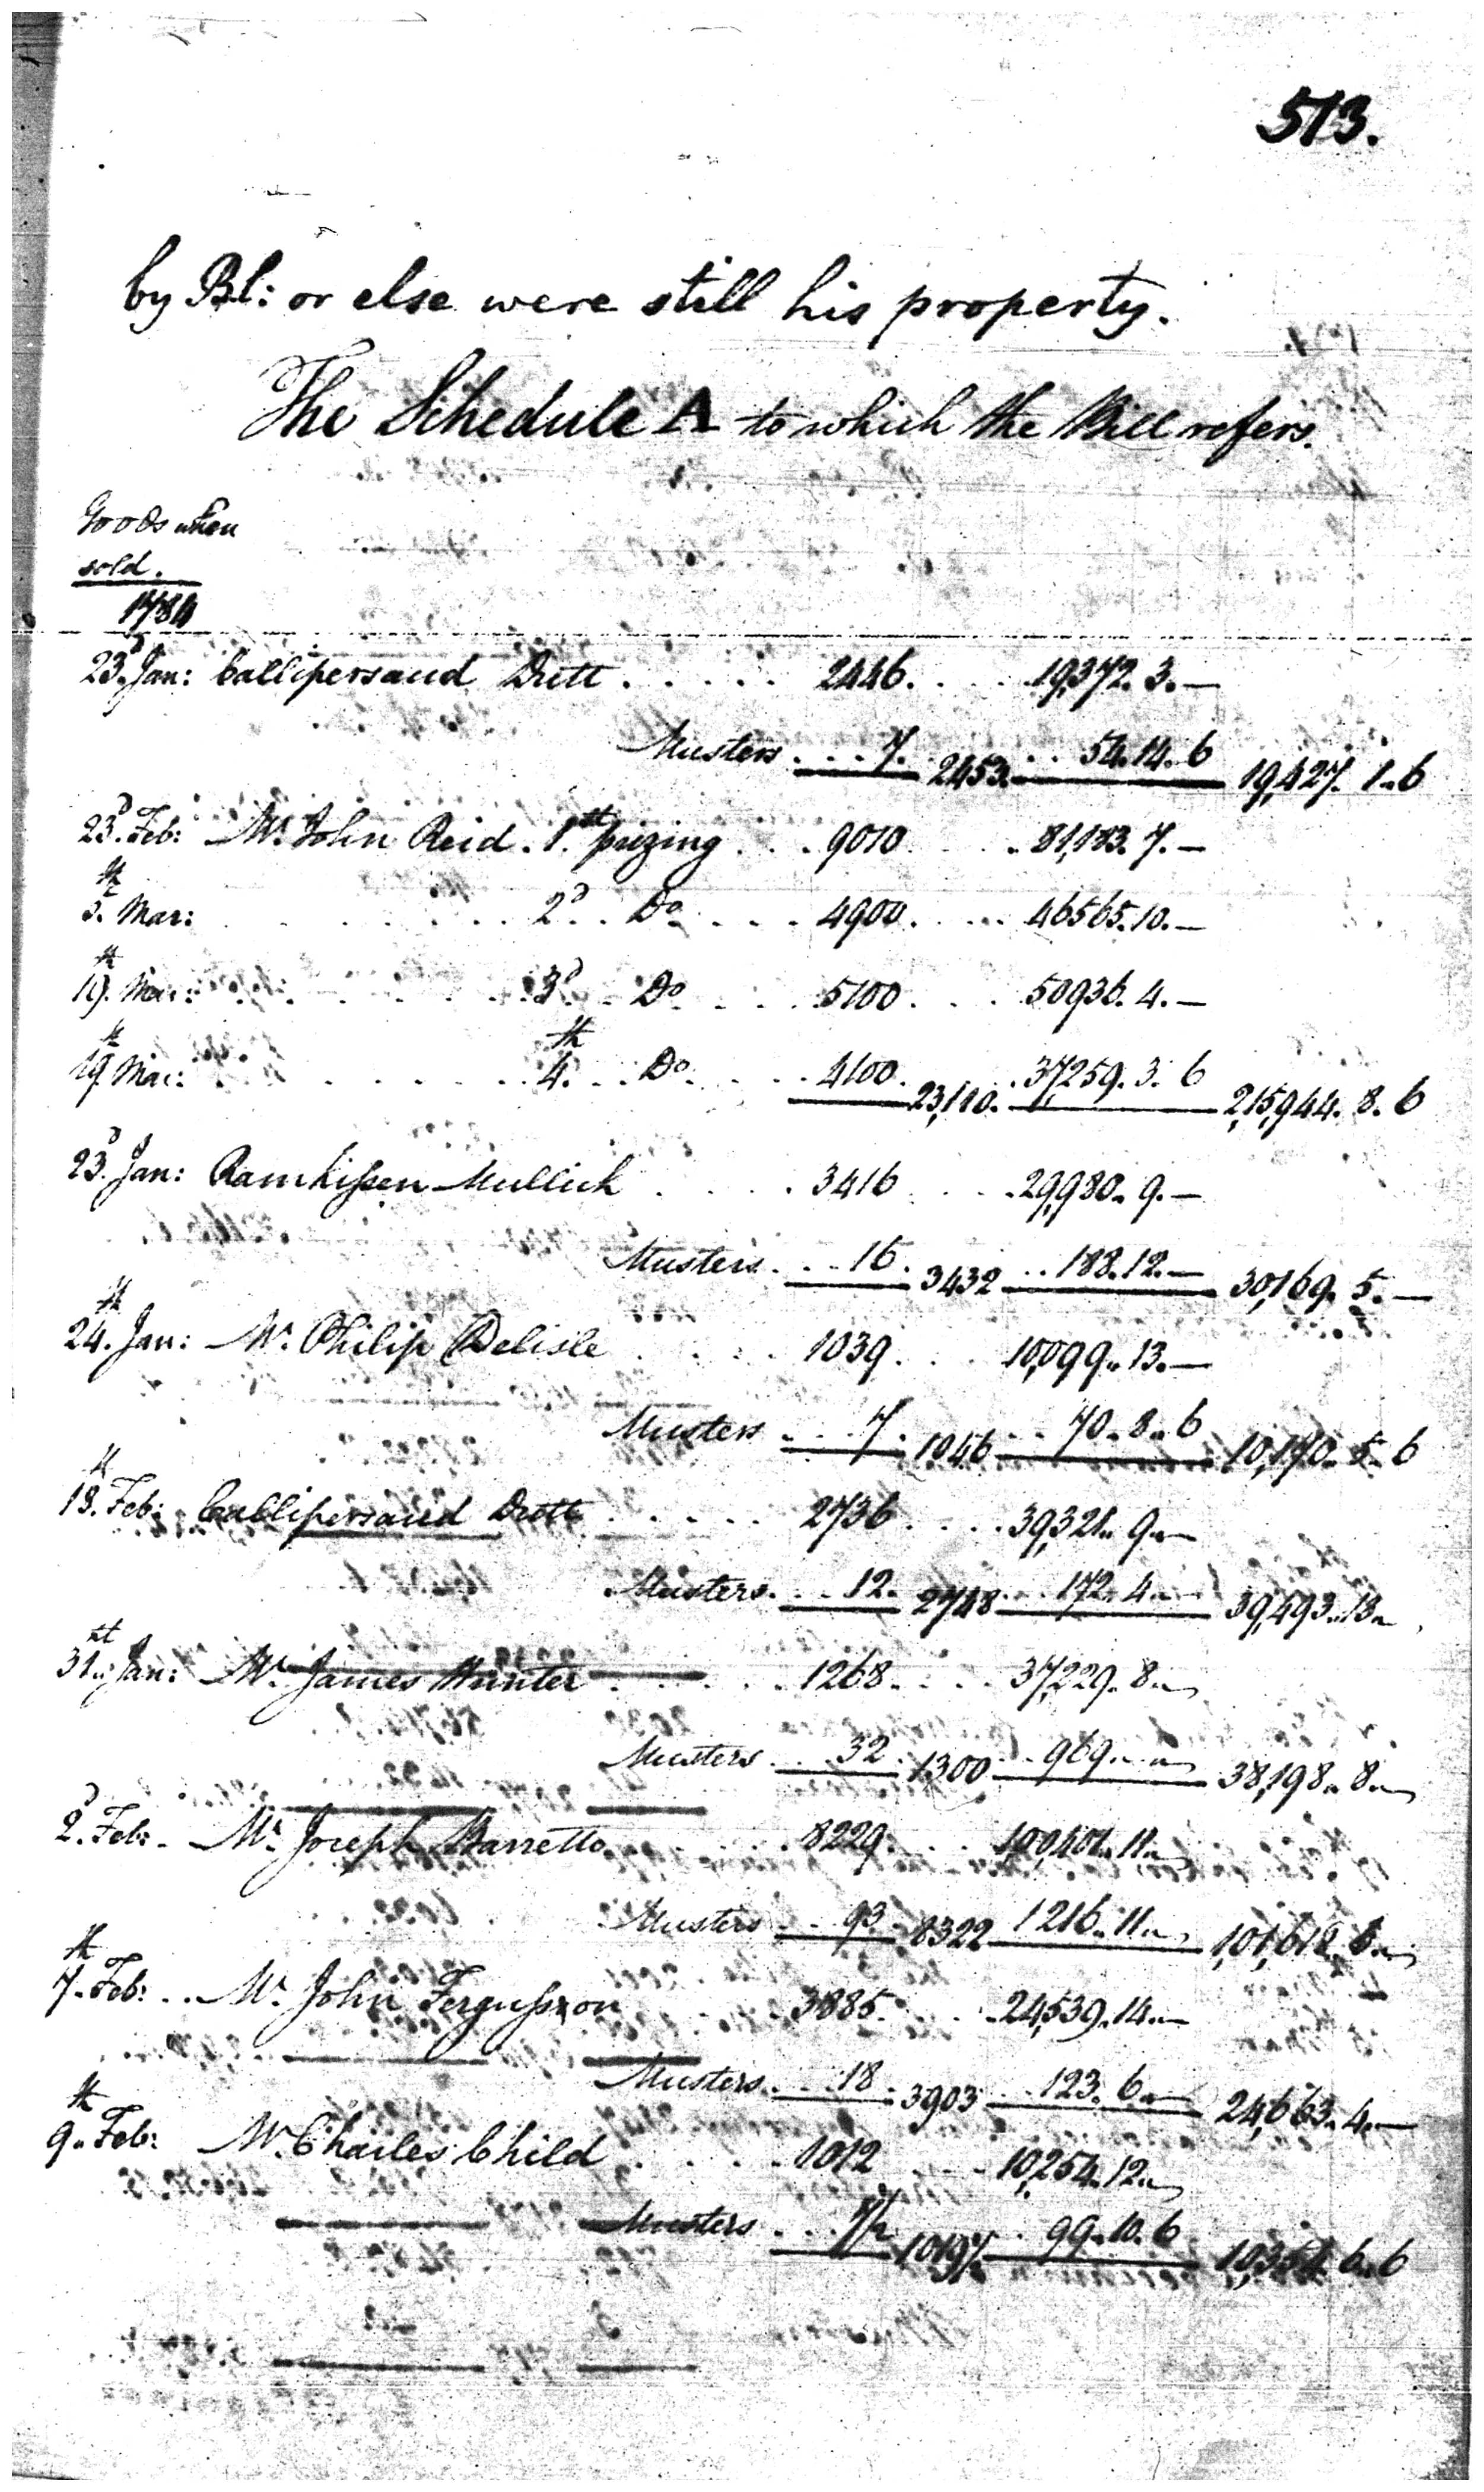 513.
by Bl: or else were still his property.
The Schedule A to which the Bill refers.
Goods when
sold.
1784
23d Jan: Callipersaud Dutt . . . . . 2446. . . . 19,372. 3. —
Musters . . . 7. 2453. . . 54. 14. 6 19,427. 1. 6
23d Feb: Mr. John Reid. 1st prizing . . . 9010 . . . 81,183. 7. —
5th Mar: . . . . . . 2d . . Do . . . 4900 . . . 46565. 10. —
19th Mar: . . . . . . 3d . . Do . . . 5100 . . . 50936. 4. —
19th Mar: . . . . . . 4th . . Do . . . 4100. 23,110. 37,259. 3. 6 2,15,944. 8. 6
23d Jan: Ramkissen Mullick . . . . 3416 . . . 29,980. 9. —
Musters . . 16. 3432 . . 188. 12. — 30,169. 5. —
24th Jan: Mr. Philip Delisle . . . . 1039. . . 10,099. 13. —
Musters . . . 7. 1046 . . 70. 8. 6 10,170. 5. 6
13th Feb: Callipersaud Dutt . . . . . 2736 . . . 39,321. 9. —
Musters. . . 12. 2748 . . 172. 4. — 39,493. 13. —
31st Jan: Mr. James Hunter . . . . . 1268 . . . 37,229. 8. —
Musters . . 32. 1300 . . 969. — — 38,198. 8. —
2d Feb: Mr. Joseph Barretto . . . 8229. . . 1,00,401. 11. —
Musters . . 93. 8322 1216. 11. — 1,01,618. 6. —
7th Feb: . . Mr. John Fergusson . . . 3885. . . 24,539. 14. —
Musters . . 18. 3903 . . 123. 6. — 24,663. 4. —
9th Feb: Mr. Charles Child . . . . 1012 . . . 10,254. 12. —
Musters . . . 7 1019 . . 99. 10. 6 10,354. 6. 6